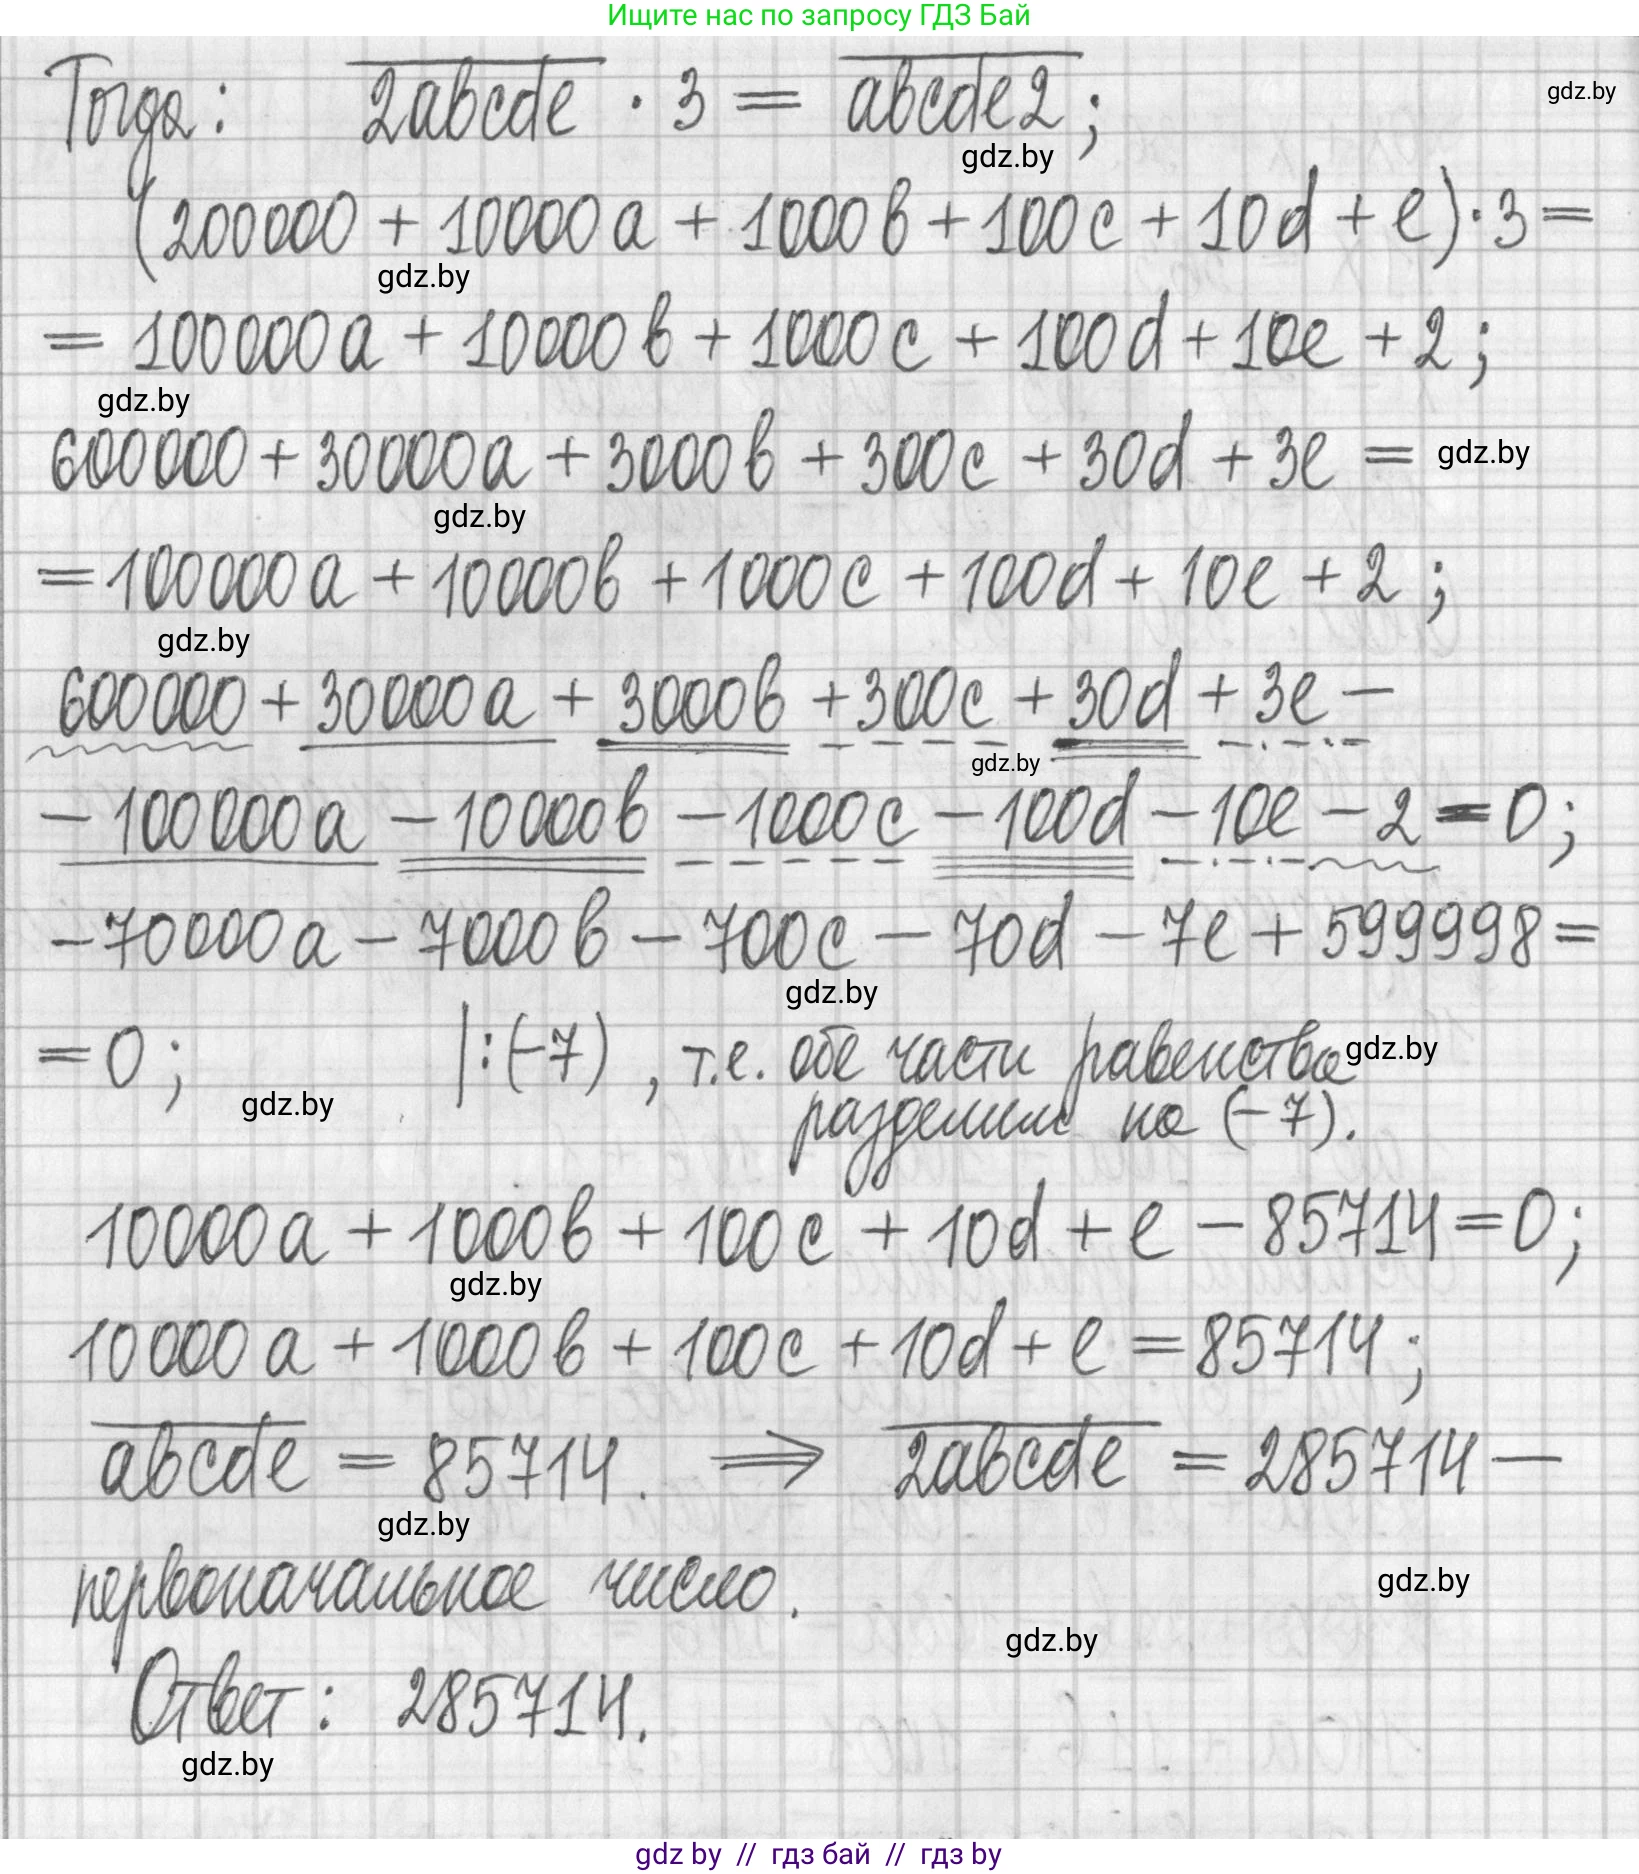 Ищите нас по запросу ГДЗ Бай
Тогда: 2abcde · 3 = abcde2;
gdz.by
gdz.by
(200000 + 10000a + 1000b + 100c + 10d + e) · 3 =
gdz.by
= 100000a + 10000b + 1000c + 100d + 10e + 2;
gdz.by
600000 + 30000a + 3000b + 300c + 30d + 3e =
gdz.by
gdz.by
= 100000a + 10000b + 1000c + 100d + 10e + 2;
gdz.by
600000 + 30000a + 3000b + 300c + 30d + 3e −
gdz.by
− 100000a − 10000b − 1000c − 100d − 10e − 2 = 0;
− 70000a − 7000b − 700c − 70d − 7e + 599998 =
gdz.by
= 0; |:(−7), т.е. обе части равенства
gdz.by
gdz.by
разделим на (−7).
10000a + 1000b + 100c + 10d + e − 85714 = 0;
gdz.by
10000a + 1000b + 100c + 10d + e = 85714;
abcde = 85714. ⇒ 2abcde = 285714 —
gdz.by
первоначальное число.
gdz.by
gdz.by
Ответ: 285714.
gdz.by
gdz by // гдз бай // гдз by